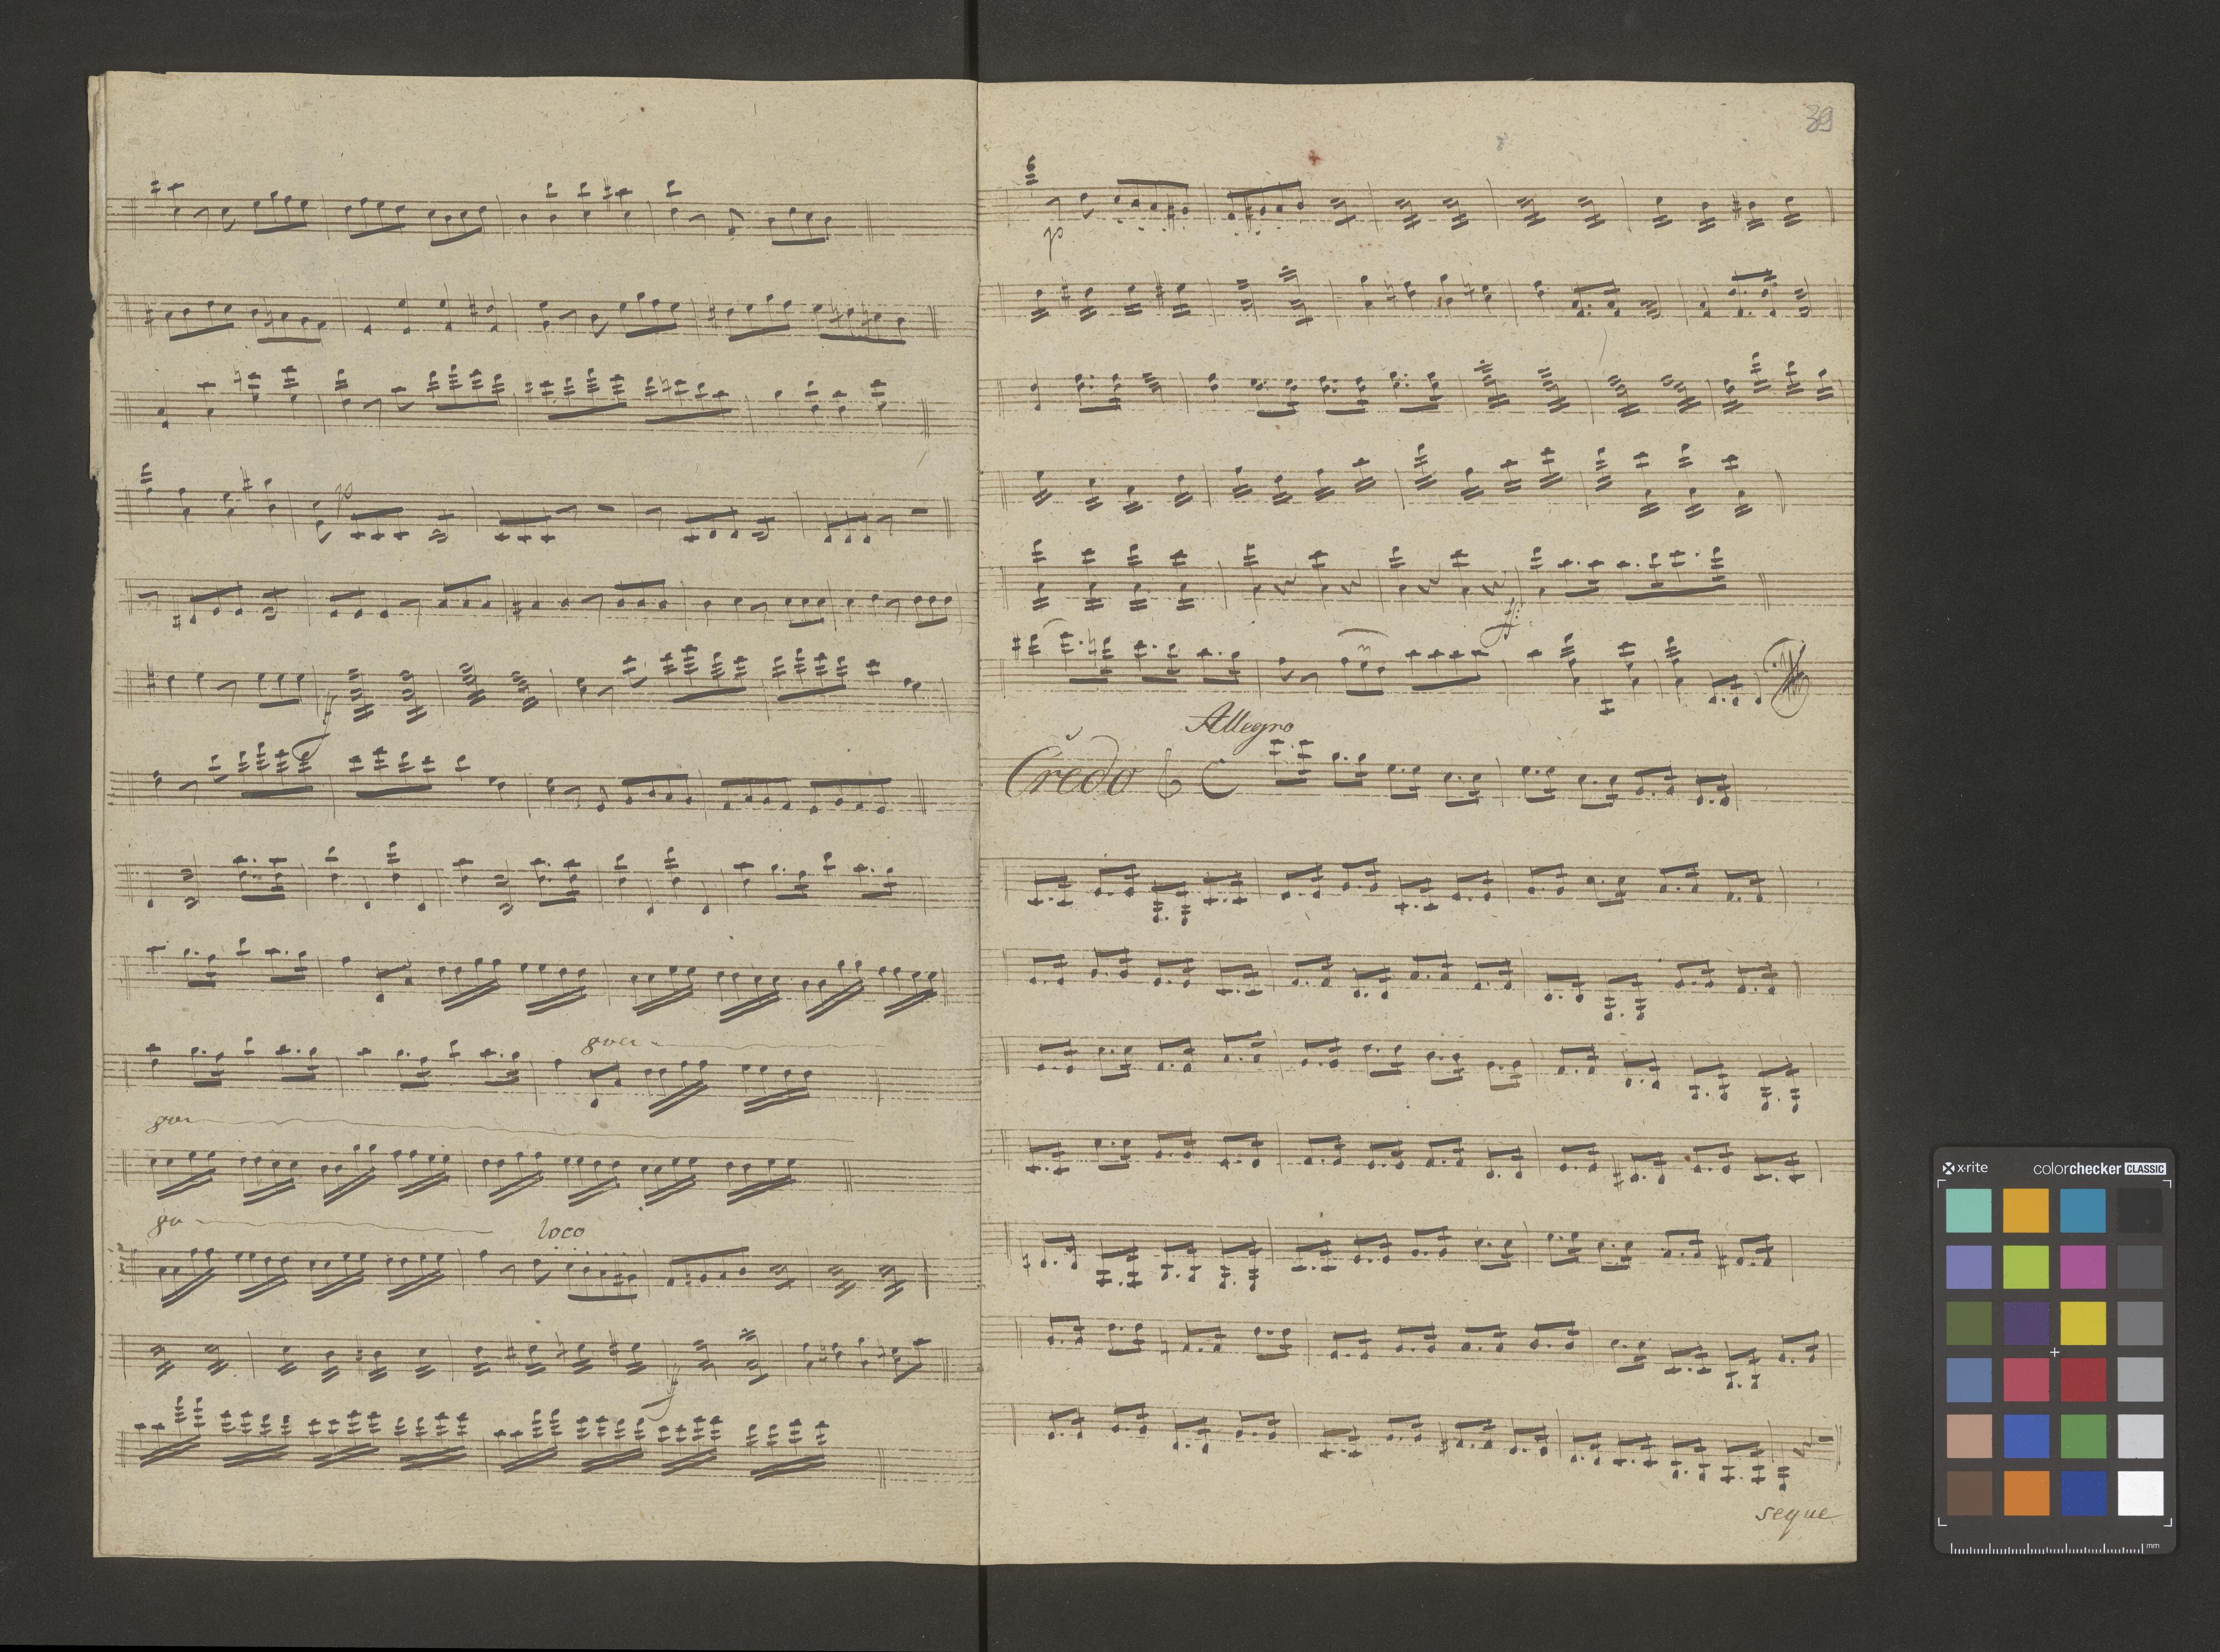 p
f
8va
8va
8va loco
f
39
p
ff:
Allegro
Credo
seque
x-rite colorchecker CLASSIC
mm